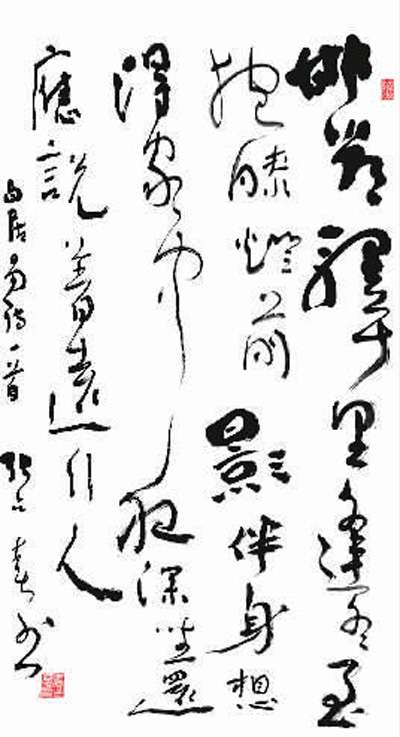 邯鄲驛里逢冬至
抱膝燈前影伴身想
得家中夜深坐還
應說着遠行人
白居易詩一首 春书